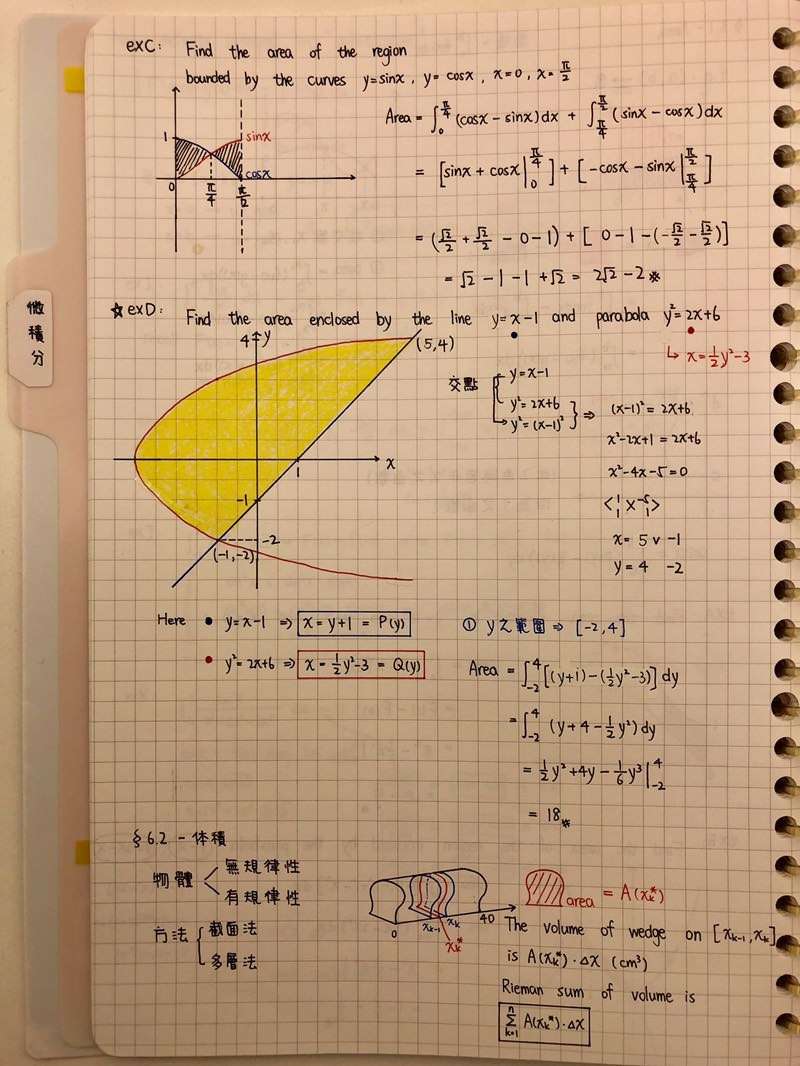 微積分
exC: Find the area of the region
bounded by the curves y=sinx, y=cosx, x=0, x=π/2
1
sinx
cosx
0 π/4 π/2
Area = ∫_0^{π/4} (cosx - sinx)dx + ∫_{π/4}^{π/2} (sinx - cosx)dx
= [sinx + cosx |_0^{π/4}] + [-cosx - sinx |_{π/4}^{π/2}]
= (√2/2 + √2/2 - 0 - 1) + [0 - 1 - (-√2/2 - √2/2)]
= √2 - 1 - 1 + √2 = 2√2 - 2 ※
☆exD: Find the area enclosed by the line y=x-1 and parabola y²=2x+6
↳ x=½y²-3
4 y
(5,4)
x
1
-1
-2
(-1,-2)
交點 { y=x-1
y²=2x+6
y²=(x-1)² } ⇒ (x-1)²=2x+6
x²-2x+1=2x+6
x²-4x-5=0
< 1 -5
1 1 >
x= 5 ∨ -1
y= 4 -2
Here • y=x-1 ⇒ x=y+1=P(y)
• y²=2x+6 ⇒ x=½y²-3=Q(y)
① y之範圍 ⇒ [-2,4]
Area = ∫_{-2}^4 [(y+1)-(½y²-3)] dy
= ∫_{-2}^4 (y+4-½y²) dy
= ½y²+4y-⅙y³ |_{-2}^4
= 18 ※
§6.2 - 体積
物體 < 無規律性
有規律性
方法 { 截面法
多層法
0 x_{k-1} x_k 40
x_k*
area = A(x_k*)
The volume of wedge on [x_{k-1}, x_k]
is A(x_k*)·Δx (cm³)
Rieman sum of volume is
∑_{k=1}^n A(x_k*)·Δx